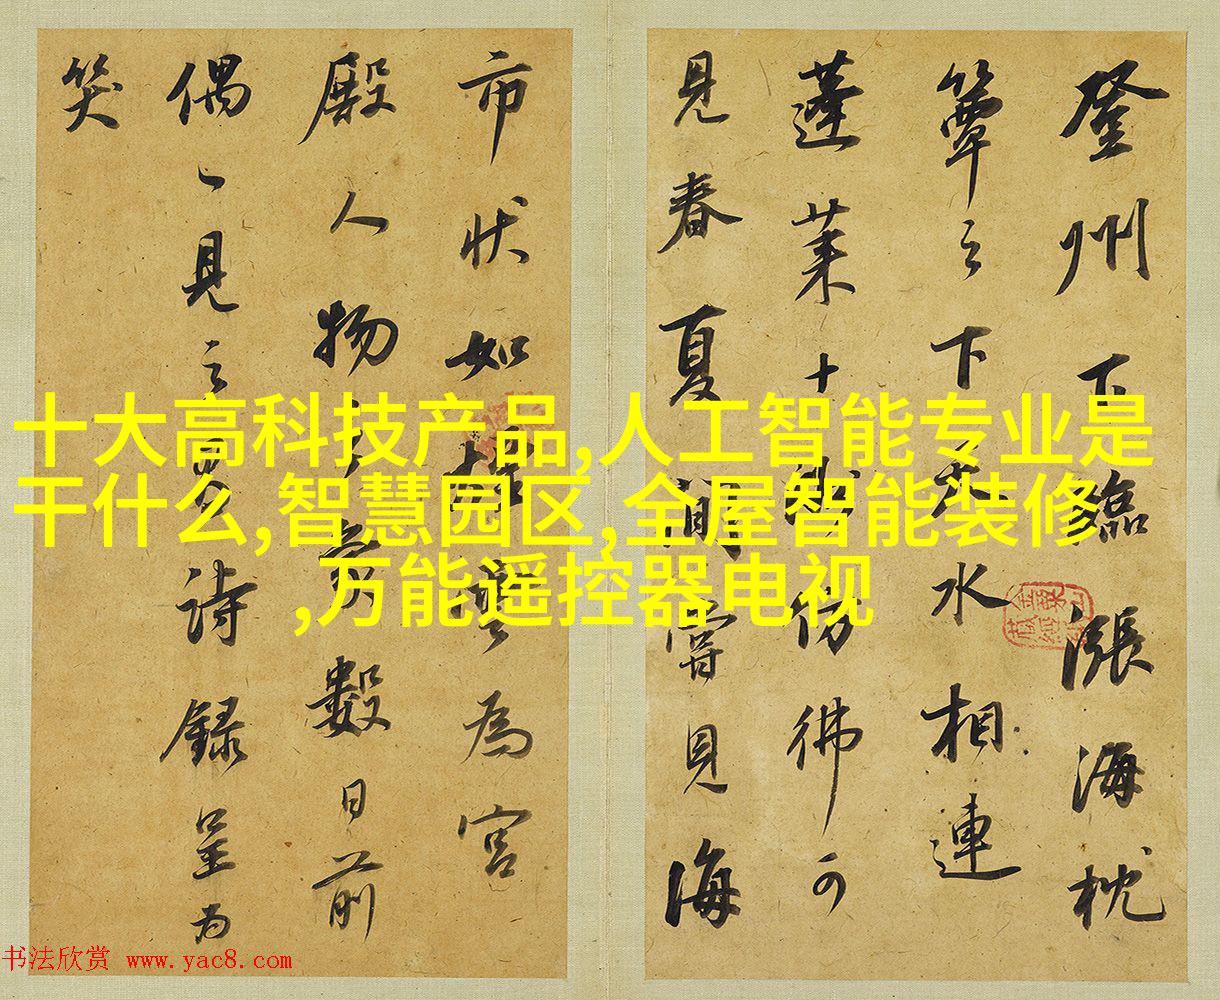 登州下臨漲海枕
簟之下天水相連
蓬萊十仿彿可
見春夏間嘗見海
市状如為宮
殿人物之數日前
偶〻見之詩録呈為
笑
十大高科技产品,人工智能专业是
干什么,智慧园区,全屋智能装修
,万能遥控器电视
书法欣赏 www.yac8.com